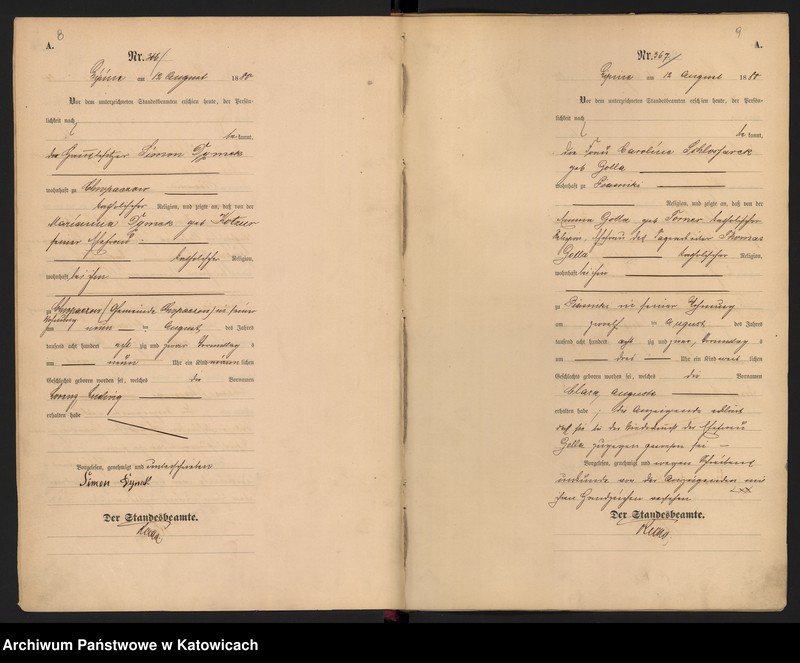 8
A.
Nr. 366/
Lipine am 12 August 1880
Vor dem unterzeichneten Standesbeamten erschien heute, der Persön-
lichkeit nach
be kannt,
der Simon Dymek
wohnhaft zu Chropaczow
katholischer Religion, und zeigte an, daß von der
Marianna Dymek geb
seiner Ehefrau
katholischer Religion,
wohnhaft bei ihm
zu Chropaczow (Gemeinde Chropaczow) in seiner
Wohnung
am neun ten August des Jahres
tausend acht hundert acht zig und zwar Vormittag s
um neun Uhr ein Kind männ lichen
Geschlechts geboren worden sei, welches die Vornamen
Lorenz
erhalten habe
Vorgelesen, genehmigt und unterschrieben
Simon
Der Standesbeamte.
9
A.
Nr. 367/
Lipine am 12 August 1880
Vor dem unterzeichneten Standesbeamten erschien heute, der Persön-
lichkeit nach
be kannt,
die Frau Carolina
geb Golla
wohnhaft zu Piasniki
Religion, und zeigte an, daß von der
Golla geb katholischer
Religion, Ehefrau des Thomas
Golla katholischer Religion,
wohnhaft bei ihm
zu Piasniki in seiner Wohnung
am zwölf ten August des Jahres
tausend acht hundert acht zig und zwar Vormittag s
um drei Uhr ein Kind weib lichen
Geschlechts geboren worden sei, welches die Vornamen
Clara Auguste
erhalten habe; die Anzeigende erklärt
daß sie bei der Niederkunft der Ehefrau
Golla zugegen gewesen sei
Vorgelesen, genehmigt und wegen Schreibens
unkunde von der Anzeigenden mit
ihrem Handzeichen versehen
xxx
Der Standesbeamte.
Archiwum Państwowe w Katowicach